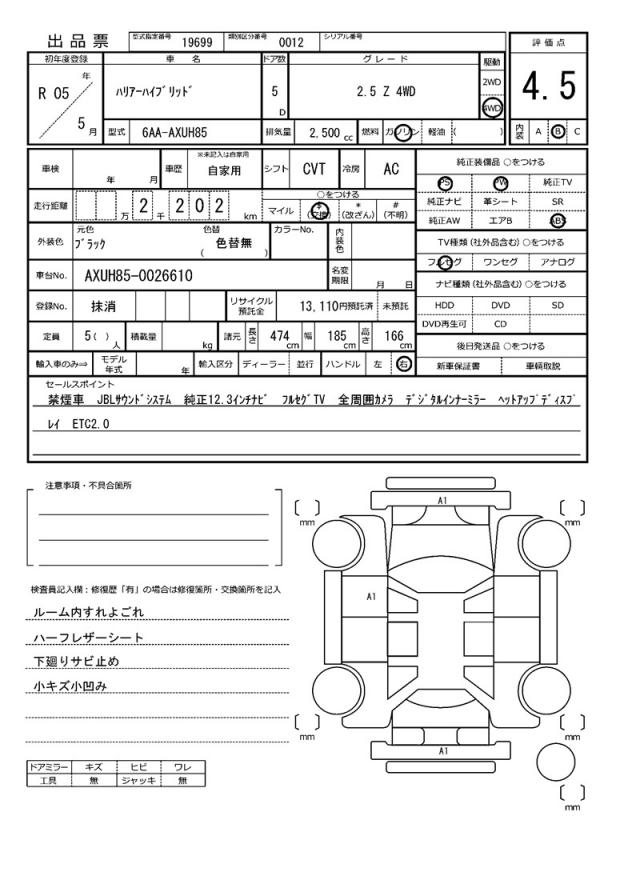 出品票 型式指定番号 19699 類別区分番号 0012 シリアル番号
評価点
4.5
内装 A B C
初年度登録 車名 ドア数 グレード 駆動
R 05 年 5 月
ハリアーハイブリッド 5 D 2.5 Z 4WD 2WD 4WD
型式 6AA-AXUH85 排気量 2,500 cc 燃料 ガソリン 軽油 ( )
車検 年 月 車歴 ※未記入は自家用 自家用 シフト CVT 冷房 AC
走行距離 万 2 千 2 0 2 km ○をつける マイル $ (交換) * (改ざん) # (不明)
外装色 元色 ブラック 色替 ( 色替無 ) カラーNo. 内装色
車台No. AXUH85-0026610 名変期限 月 日
登録No. 抹消 リサイクル預託金 13,110円預託済 未預託
定員 5( ) 人 積載量 kg 諸元 長さ 474 cm 幅 185 cm 高さ 166 cm
輸入車のみ⇒ モデル年式 年 輸入区分 ディーラー 並行 ハンドル 左 右
純正装備品 ○をつける
PS PW 純正TV
純正ナビ 革シート SR
純正AW エアB ABS
TV種類(社外品含む)○をつける
フルセグ ワンセグ アナログ
ナビ種類(社外品含む)○をつける
HDD DVD SD
DVD再生可 CD
後日発送品 ○をつける
新車保証書 車輌取説
セールスポイント
禁煙車 JBLサウンドシステム 純正12.3インチナビ フルセグTV 全周囲カメラ デジタルインナーミラー ヘットアップディスプ
レイ ETC2.0
注意事項・不具合箇所
検査員記入欄：修復歴「有」の場合は修復箇所・交換箇所を記入
ルーム内すれよごれ
ハーフレザーシート
下廻りサビ止め
小キズ小凹み
ドアミラー キズ ヒビ ワレ
工具 無 ジャッキ 無
A1
mm mm
A1
mm mm
A1
mm